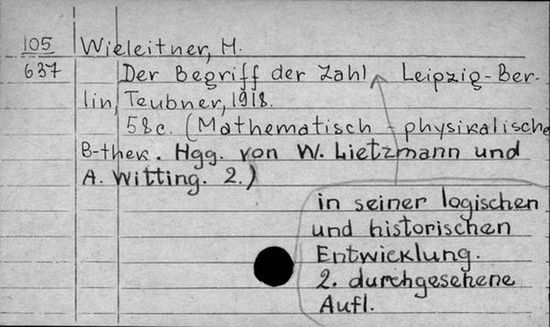 105 Wieleitner, H.
637 Der Begriff der Zahl Leipzig-Ber-
lin, Teubner, 1918.
58c. (Mathematisch-physikalische
B-thek. Hgg. von W. Lietzmann und
A. Witting. 2.)
in seiner logischen
und historischen
Entwicklung.
2. durchgesehene
Aufl.